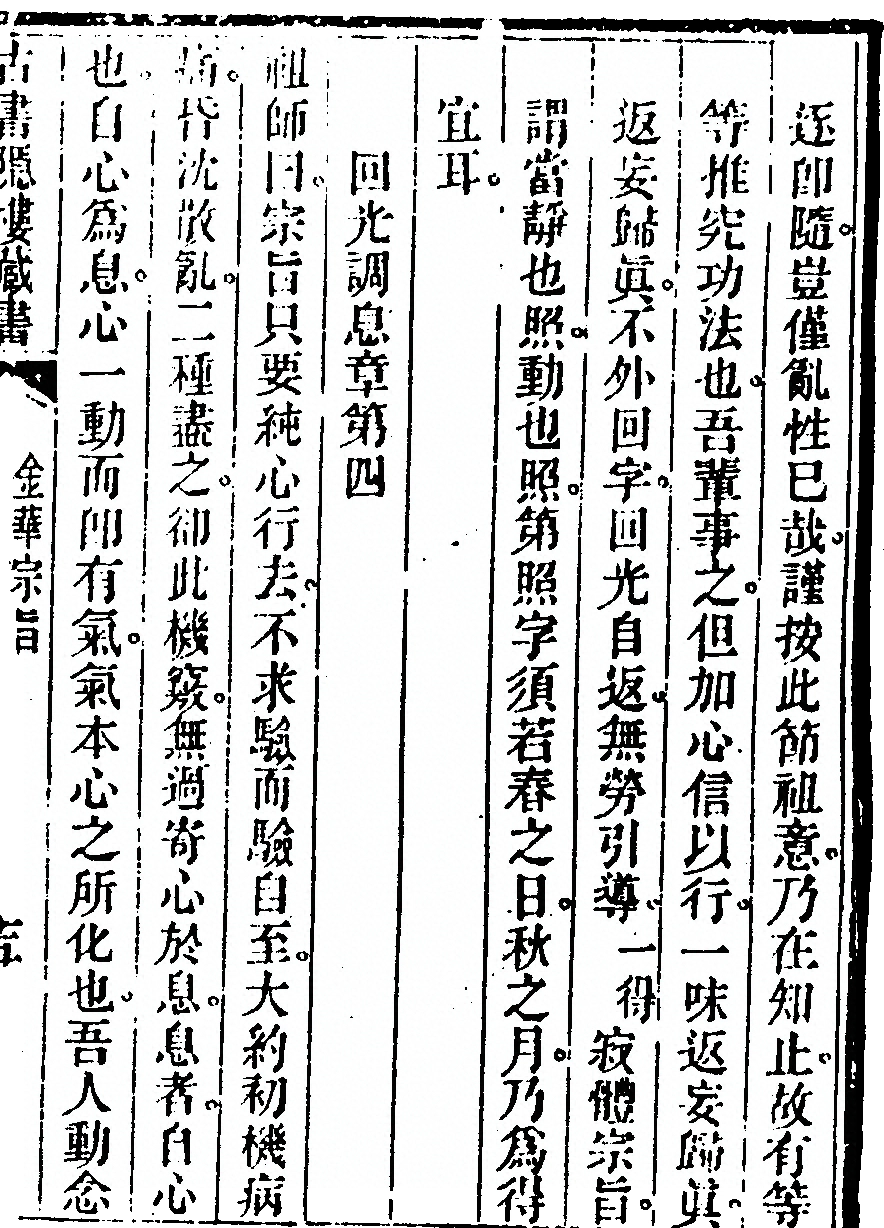 逐即隨。豈僅亂性已哉。謹按此節祖意。乃在知止。故有等
等推究功法也。吾輩事之。但加心信以行。一味返妄歸眞。
返妄歸眞。不外回字。回光自返。無勞引導。一得寂體宗旨。
謂當靜也照。動也照。第照字須若春之日。秋之月。乃爲得
宜耳。
回光調息章第四
祖師曰。宗旨只要純心行去。不求驗而驗自至。大約初機病
痛。昏沈散亂。二種盡之。卻此機竅。無過寄心於息。息者。自心
也。自心爲息。心一動而即有氣。氣本心之所化也。吾人動念
古書隱樓藏書
金華宗旨